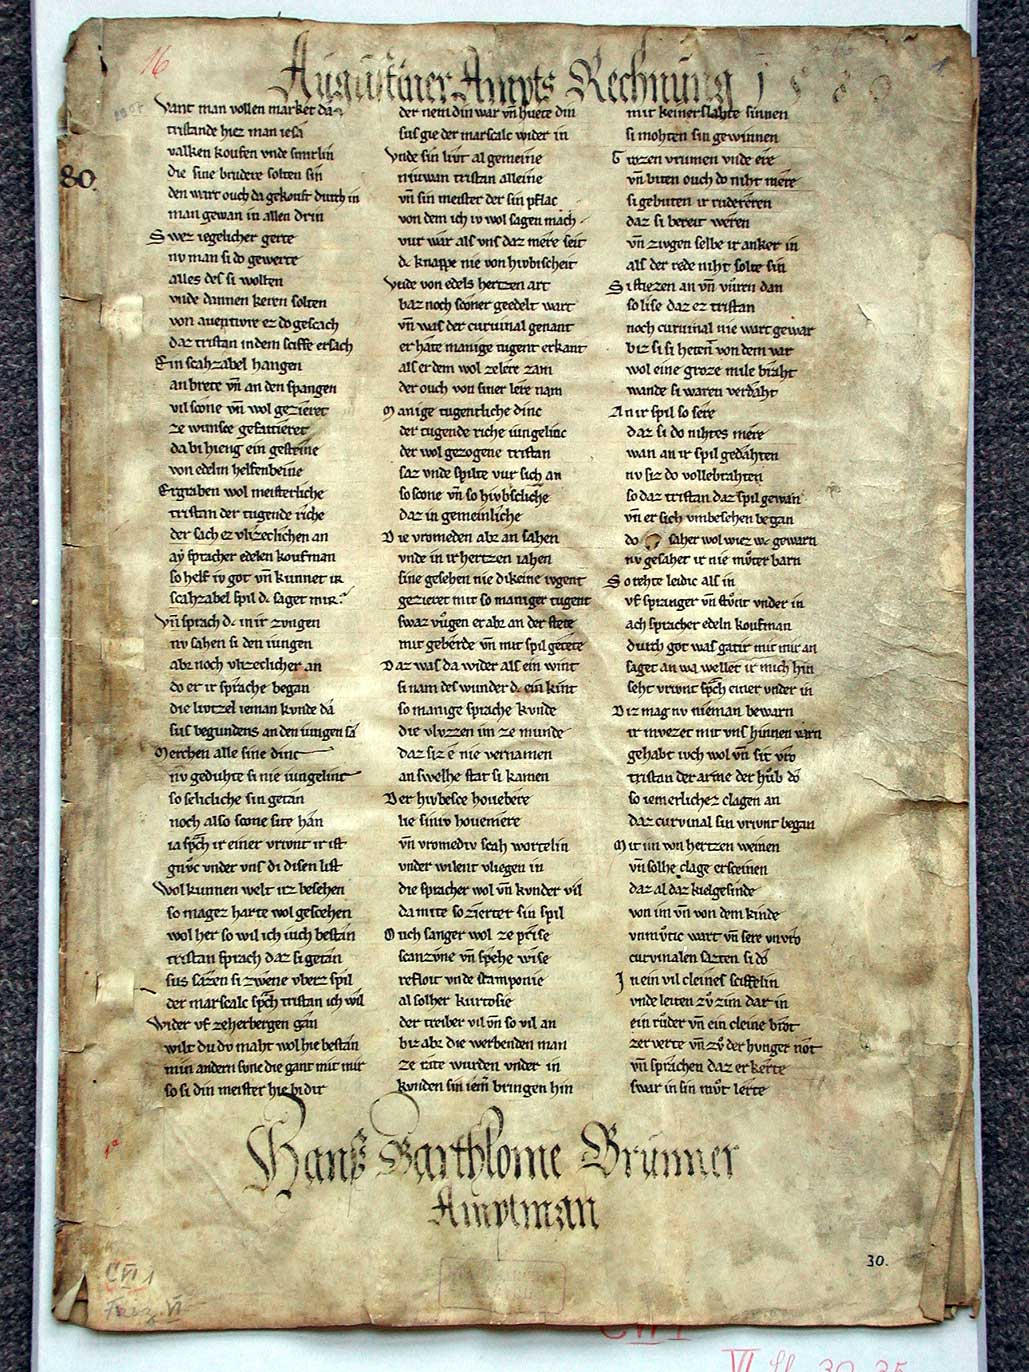 16
Augustiner Ampts Rechnung 1580
80
Vant man vollen market da
tristande hiez man iesa
valken koufen vnde smirlin
die sine brudere solten sin
den wart ouch da gekouft durch in
man gewan in allen drin
Swez iegelicher gerte
nv man si do gewerte
alles des si wolten
vnde dannen keren solten
von auentivre ez do gescach
daz tristan in dem sciffe ersach
Ein scahzabel hangen
an brete vn̄ an den spangen
vil scone vn̄ wol gezieret
ze wunsce gefeitieret
da bi hieng ein gesteine
von edelm helfenbeine
Ergraben wol meisterliche
tristan der tugende riche
der sach ez vlizeclichen an
ay spracher edelen koufman
so helf iv got vn̄ kunnet ir
scahzabel spil d. saget mir
Vn̄ sprach d. in ir zvngen
nv sahen si den iungen
abr noch vlizeclicher an
do er ir sprache began
die lvtzel ieman kvnde da
sus begundens an den iungen sa
Merchen alle sine dinc
nv geduhte si nie iungelinc
so selicliche sin getan
noch also scone site han
ia sp̄ch ir einer vrivnt ir ist
gnv̊c vnder vns di disen list
Wol kunnen welt irz besehen
so magez harte wol gescehen
wol her so wil ich iuch bestan
tristan sprach daz si getan
sus sazen si zwene vberz spil
der marscalc sp̄ch tristan ich wil
Wider vf ze herbergen gan
wilt du dv maht wol hie bestan
min andern sune die gant mit mir
so si din meister hie bi dir
der nem din war vn̄ huete din
sus gie der marscalc wider in
Vnde sin livt al gemeine
niuwan tristan alleine
vn̄ sin meister der sin pflac
von dem ich iv wol sagen mach
vur war als vns daz mere seit
dc knappe nie von hivbischeit
Vnde von edels hertzen art
baz noch sconer geedelt wart
vn̄ was der curvinal genant
er hate manige tugent erkant
als er dem wol zelere zam
der ouch von siner lere nam
Manige tugentliche dinc
der tugende riche iungelinc
der wol gezogene tristan
saz vnde spilte vur sich an
so scone vn̄ so hivbscliche
daz in gemeinliche
Die vromeden abr an sahen
vnde in ir hertzen iahen
sine gesehen nie dikeine ivgent
gezieret mit so maniger tugent
swaz vůgen er abr an der stete
mit geberde vn̄ mit spil getete
Daz was da wider als ein wint
si nam des wunder d. ein kint
so manige sprache kvnde
die vluzzen im ze munde
daz siz e nie vernamen
an swelhe stat si kamen
Der hivbesce houebere
lie siniv houemere
vn̄ vromediv scah wortelin
vnder wilent vliegen in
die spracher wol vn̄ kvnder vil
da mite so zierter sin spil
Ouch sanger wol ze prise
scanzune vn̄ spehe wise
refloit vnde stamponie
al solher kurtosie
der treiber vil vn̄ so vil an
biz abr die werbenden man
ze rate wurden vnder in
kvnden sin iem̄ bringen hin
mit keiner slahte sinnen
si mohten sin gewinnen
Grozen vrumen vnde ere
vn̄ biten ouch do niht mere
si gebuten ir ruderéren
daz si bereit weren
vn̄ zvgen selbe ir anker in
als der rede niht solte sin
Si stiezen an vn̄ vůren dan
so lise daz ez tristan
noch curvinal nie wart gewar
biz si si heten̄ von dem var
wol eine groze mile braht
wande si waren verdaht
An ir spil so sere
daz si do nihtes mere
wan an ir spil gedahten
nv siz do vollebrahten
so daz tristan daz spil gewan
vn̄ er sich vmbesehen began
do saher wol wiez wc gewarn
nv gesaher ir nie můter barn
So rehte leidic als in
vf spranger vn̄ stv̊nt vnder in
ach spracher edeln koufman
durch got was gatir mit mir an
saget an wa wellet ir mich hin
seht vrivnt sp̄ch einer vnder in
Diz mag nv nieman bewarn
ir mvezet mit vns hinnen varn
gehabt ivch wol vn̄ sit vro
tristan der arme der hůb do
so iemerlichez clagen an
daz curvinal sin vrivnt began
Mit im von hertzen weinen
vn̄ solhe clage ersceinen
daz al daz kielgesinde
von im vn̄ von dem kinde
vnmv̊tic wart vn̄ sere vnvro
curvinalen sazten si do
In ein vil cleines sciffelin
vnde leiten zv̊ zim dar in
ein růder vn̄ ein cleine brot
zer verte vn̄ zv̊ der hvnger not
vn̄ sprachen daz er kerte
swar in sin mv̊t lerte
Hanß Barthlome Brunner
Amptman
30.
C VI 1
C VII 1
VI ff. 30-35